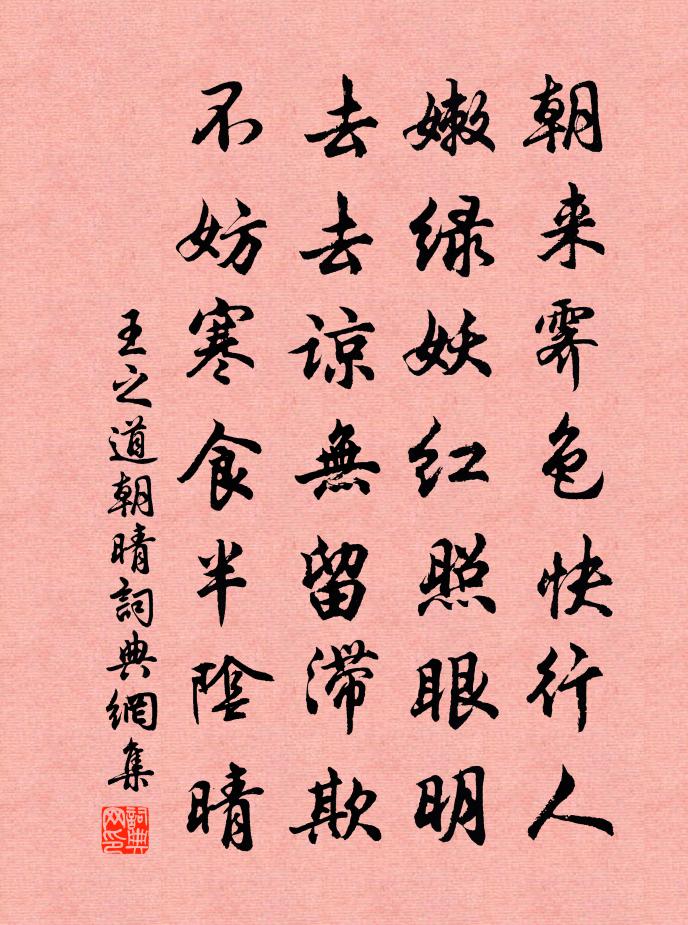 朝来霽色快行人
嫩绿妖红照眼明
去去谅無留滞欺
不妨寒食半陰晴
王之道朝晴詞典網集
詞典网印